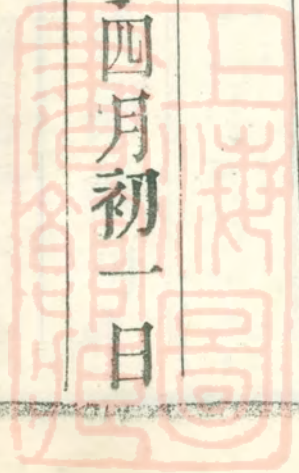 四月初一日
上海圖
書館藏